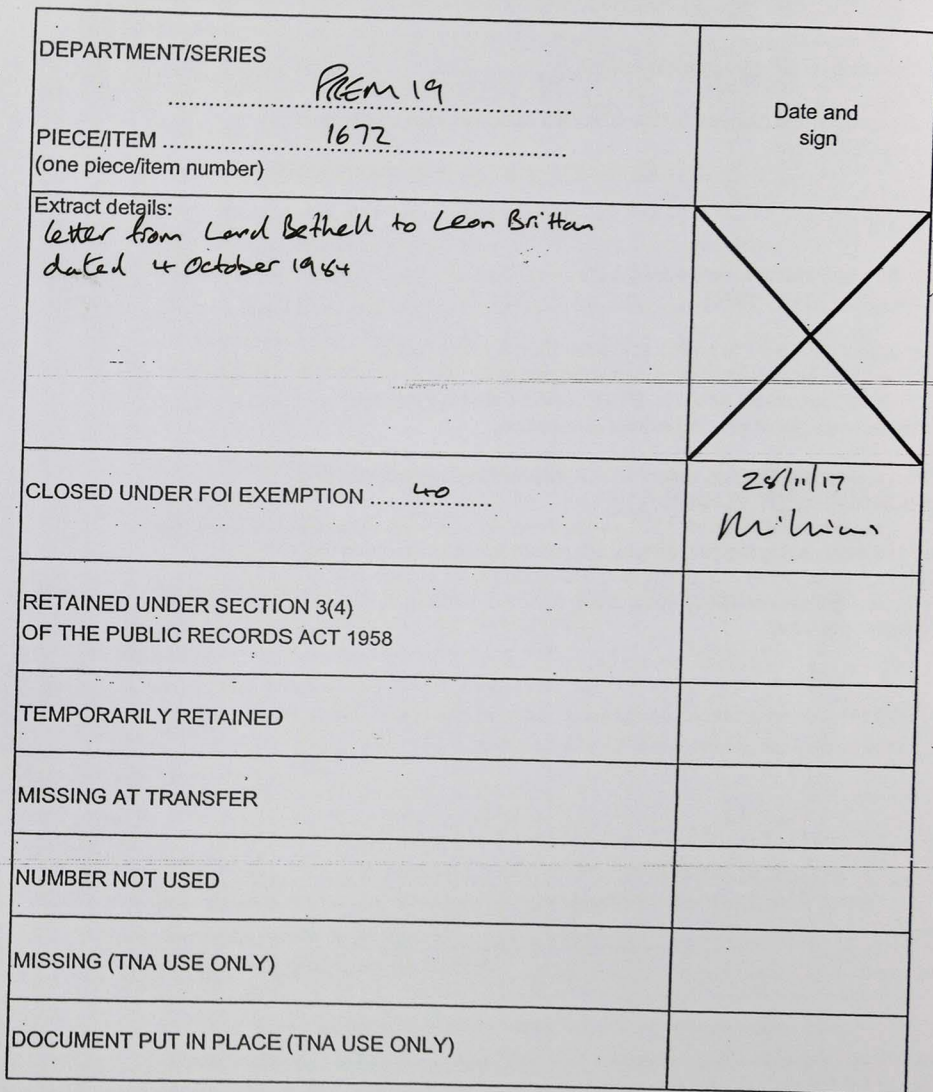 DEPARTMENT/SERIES
PREM 19
Date and
sign
PIECE/ITEM 1672
(one piece/item number)
Extract details:
letter from Lord Bethell to Leon Brittan
dated 4 October 1984
CLOSED UNDER FOI EXEMPTION 40
28/11/17
RETAINED UNDER SECTION 3(4)
OF THE PUBLIC RECORDS ACT 1958
TEMPORARILY RETAINED
MISSING AT TRANSFER
NUMBER NOT USED
MISSING (TNA USE ONLY)
DOCUMENT PUT IN PLACE (TNA USE ONLY)